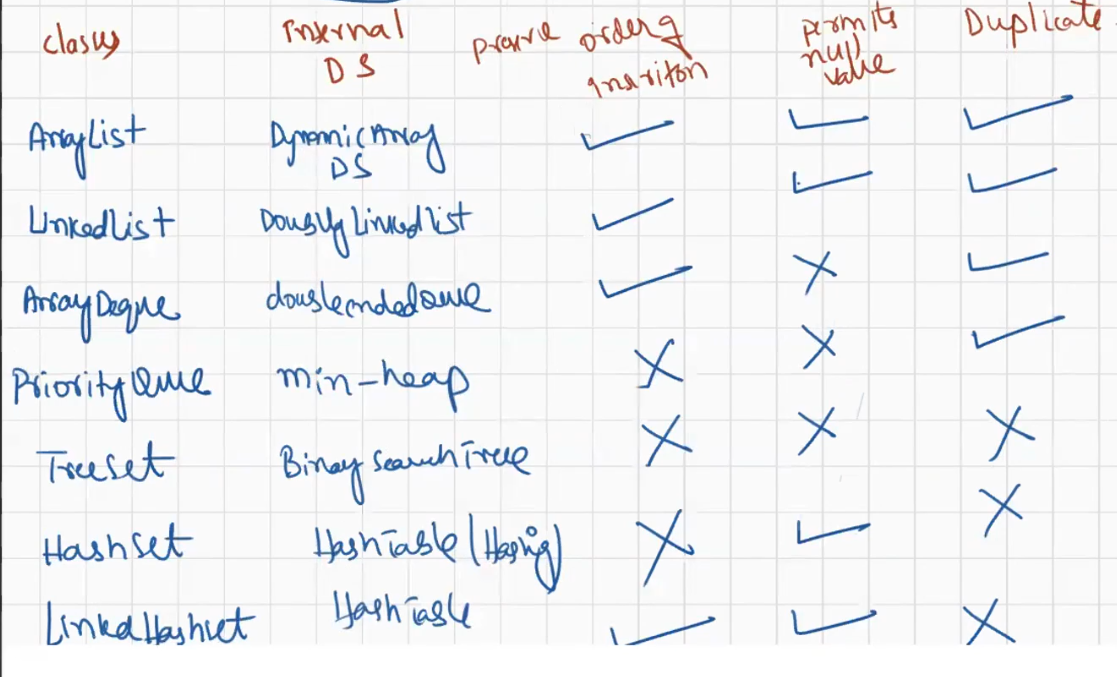 classes Internal DS preserve order of insertion permits null value Duplicate
ArrayList Dynamic Array DS ✓ ✓ ✓
LinkedList Doubly Linked list ✓ ✓ ✓
ArrayDeque double ended queue ✓ ✗ ✓
Priority Queue min-heap ✗ ✗ ✓
Treeset Binary Search Tree ✗ ✗ ✗
Hashset Hash Table (Hashing) ✗ ✓ ✗
Linked Hashset Hash Table ✓ ✓ ✗